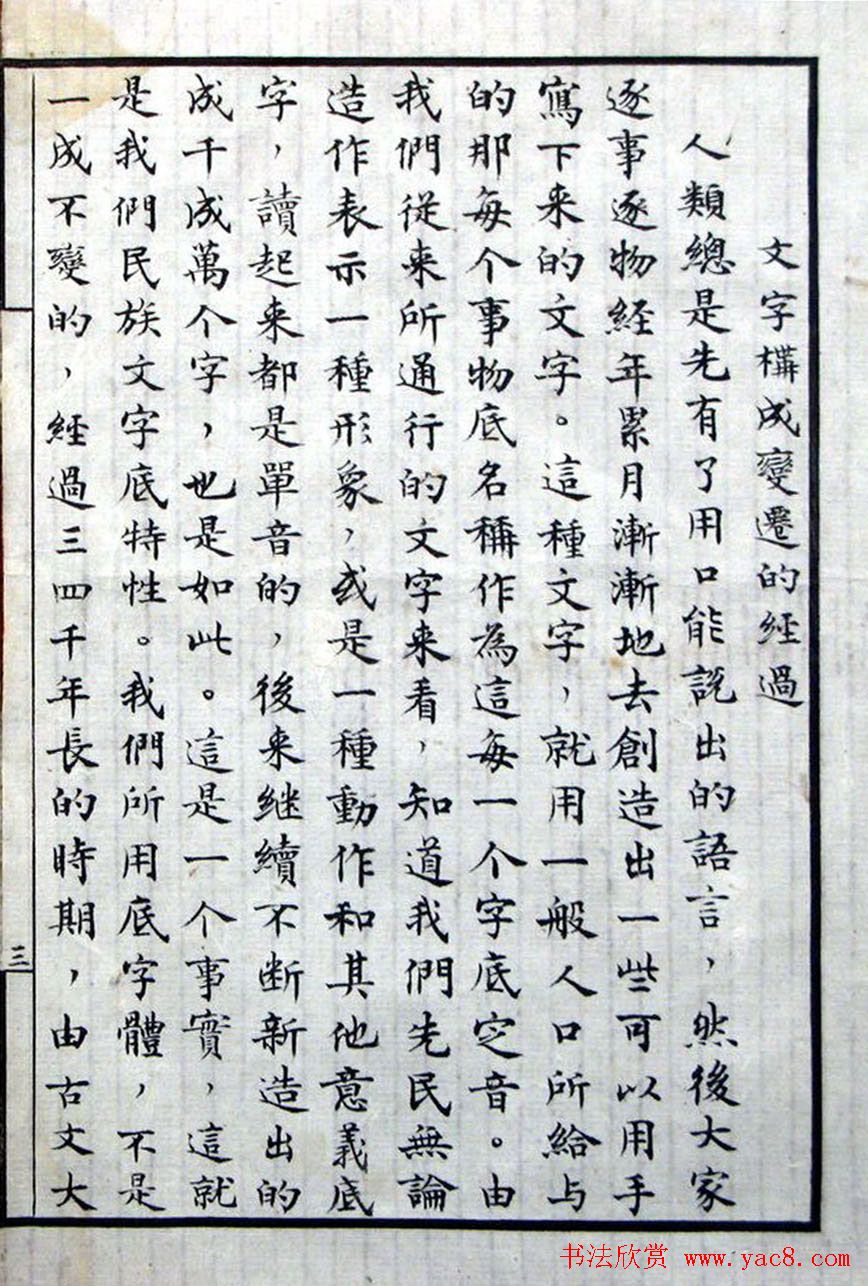 文字構成變遷的經過
人類總是先有了用口能說出的語言，然後大家
逐事逐物經年累月漸漸地去創造出一些可以用手
寫下来的文字。這種文字，就用一般人口所給与
的那每个事物底名稱作為這每一个字底定音。由
我們從来所通行的文字来看，知道我們先民無論
造作表示一種形象，或是一種動作和其他意義底
字，讀起来都是單音的，後来継續不断新造出的
成千成萬个字，也是如此。這是一个事實，這就
是我們民族文字底特性。我們所用底字體，不是
一成不變的，經過三四千年長的時期，由古文大
三
书法欣赏 www.yac8.com